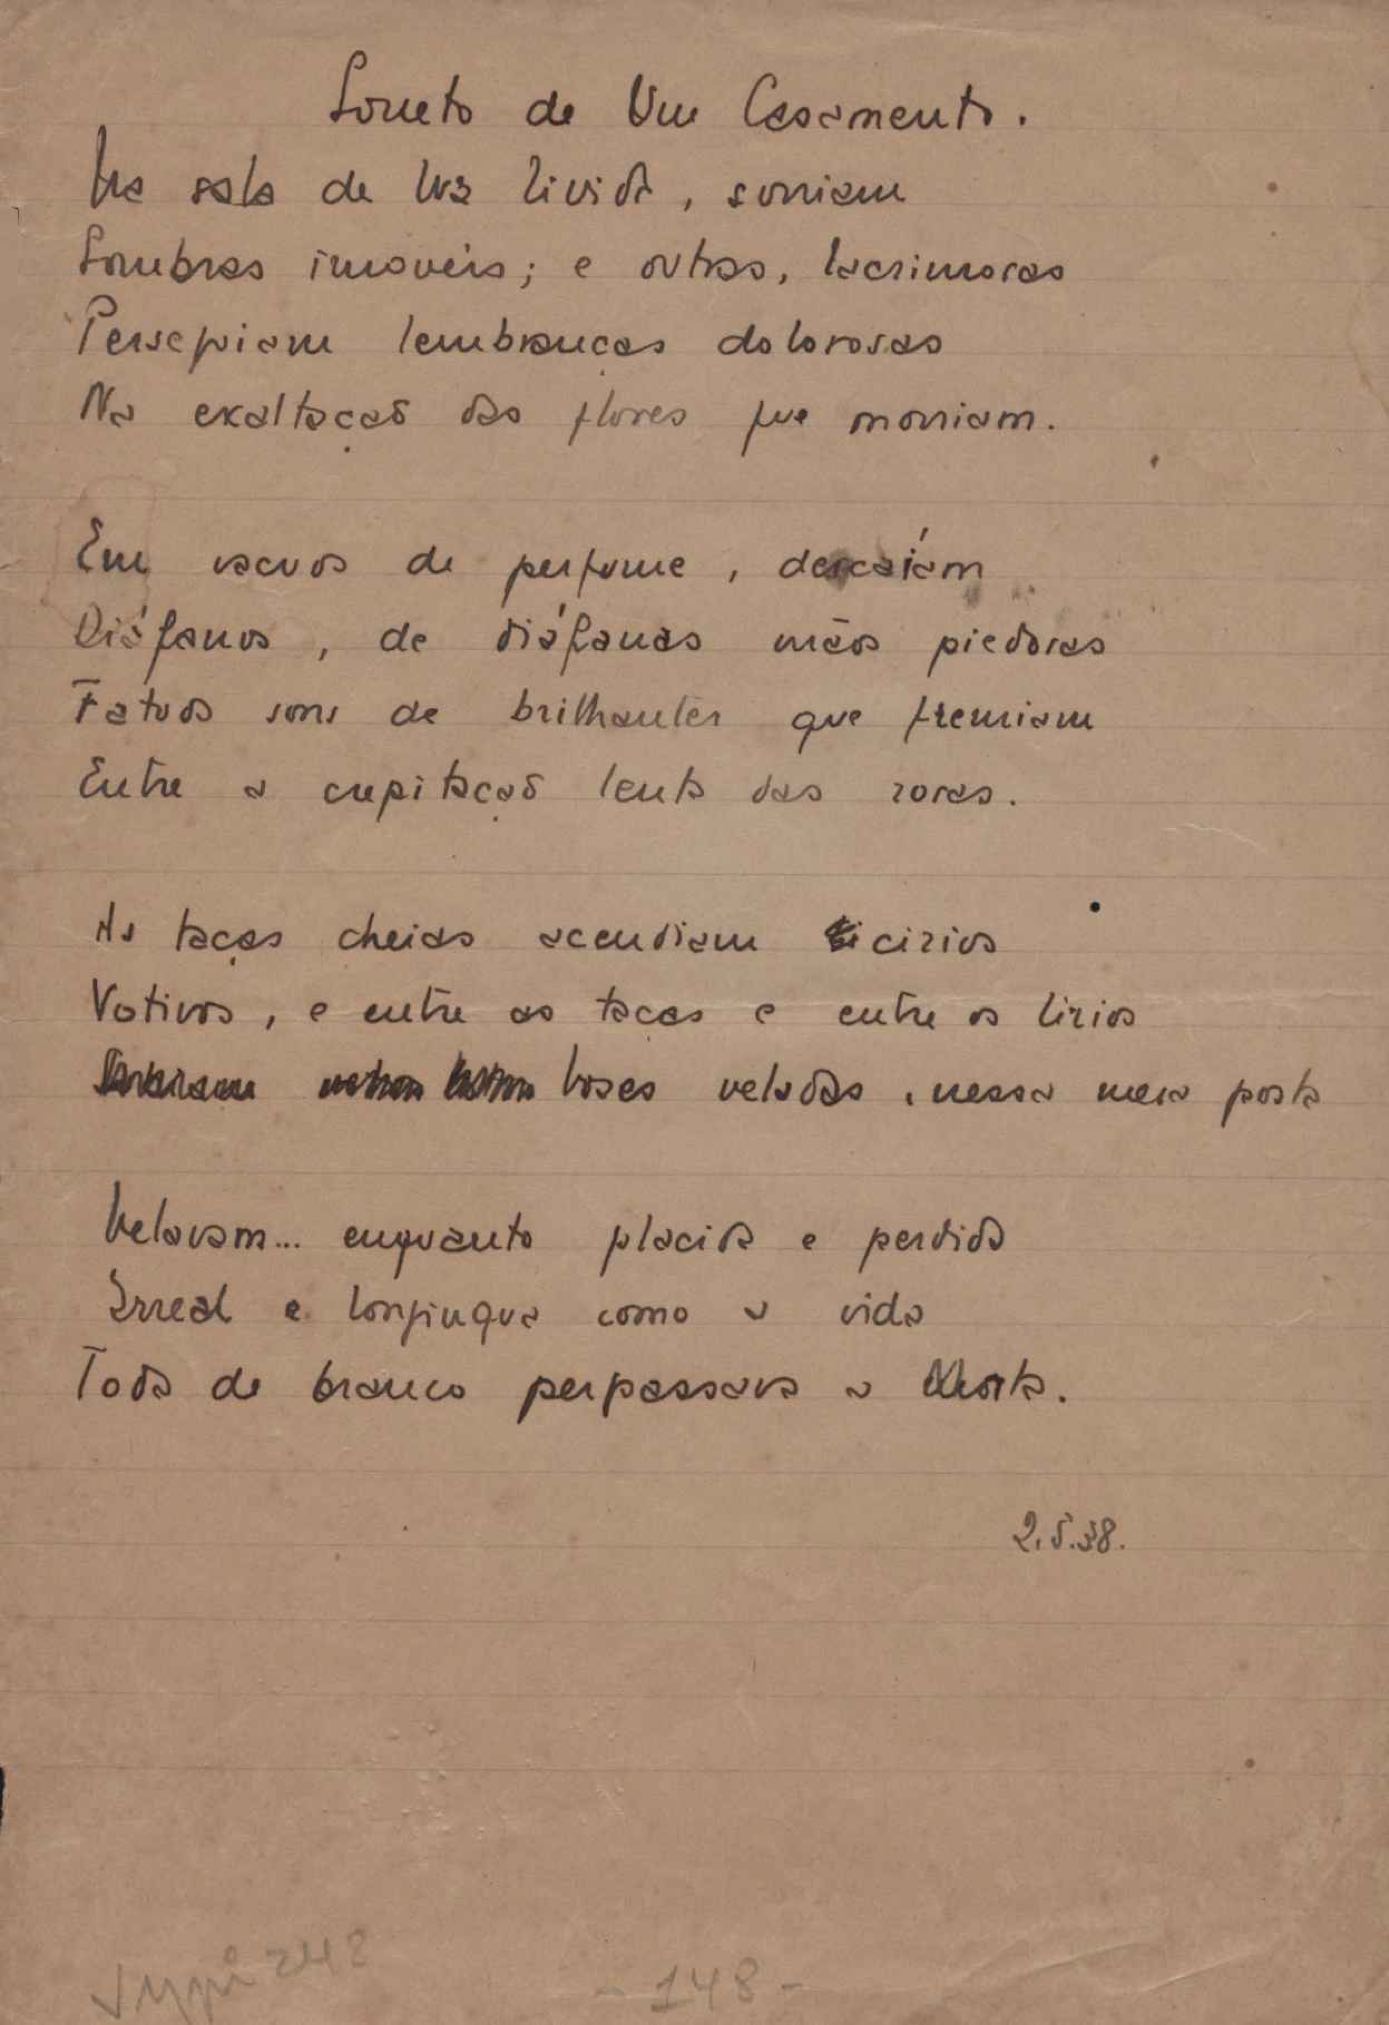 Soneto de Um Casamento.
Na sala de luz livida, sorriam
Sombras imoveis; e outras, lacrimosas
Perseguiam lembranças dolorosas
Na exaltação das flores que morriam.
Em vacuos de perfume, descaíam
Diáfanos, de diáfanas mãos piedosas
Fatuos sons de brilhantes que fremiam
Entre a crepitação lenta das rosas.
As taças cheias acendiam cirios
Votivos, e entre as taças e entre os lirios
Vozes veladas, nessa mesa posta
Velavam... enquanto placida e perdida
Irreal e longinqua como a vida
Toda de branco perpassava a Morta.
2.5.38.
-148-